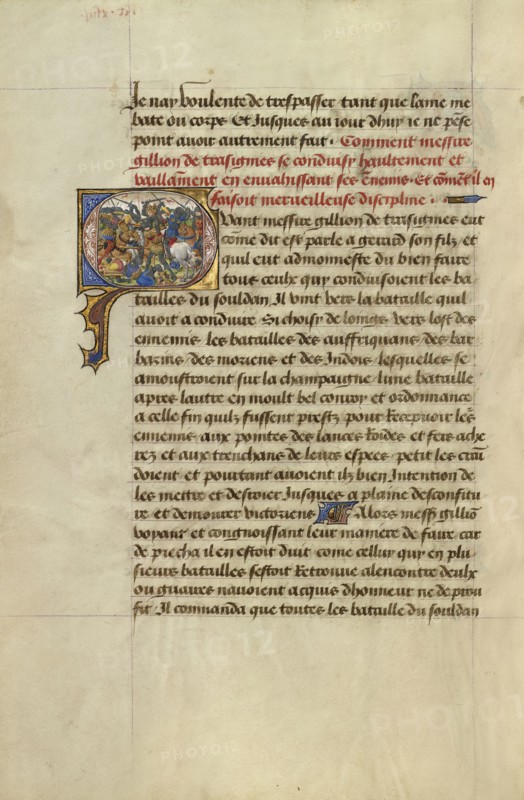 Je nay voulente de trespasser tant que lame me
bate ou corps Et Jusques au iour dhuy ie ne pēse
point avoir autrement fait. Comment messire
gillion de trasignies se conduisy haultement et
vaillāment en envahissant ses Ennemis. Et cōmēt il en
faisoit merveilleuse discipline.
Quant messire gillion de trasignies eut
cōme dit est parle a gerard son filz et
quil eut admonneste du bien faire
tous ceulx quy conduisoient les ba
tailles du souldan Il vint vers la bataille quil
avoit a conduire Si choisy de loings vers lost des
ennemis les batailles des auffriquans des bar
barins des moriens et des Indois lesquelles se
amoustroient sur la champaigne lune bataille
apres lautre en moult bel convoy et ordonnance
a celle fin quilz fussent prestz pour Recepvoir les
ennemis aux pointes des lances Roides et fers ache
rez et aux trenchans de leurs espees petit les crai
doient et pourtant avoient ilz bien Intention de
les mettre et destruire Jusques a plaine desconfitu
re et demourer victoriens Alors mess gilliō
voyant et congnoissant leur maniere de faire car
de piecha il en estoit duit come celluy quy en plu
sieurs batailles sestoit Retrouve alencontre deulx
ou guaires navoient acquis dhonneur ne de prou
fit Il commanda que toutes les bataille du souldan
PHOTO12